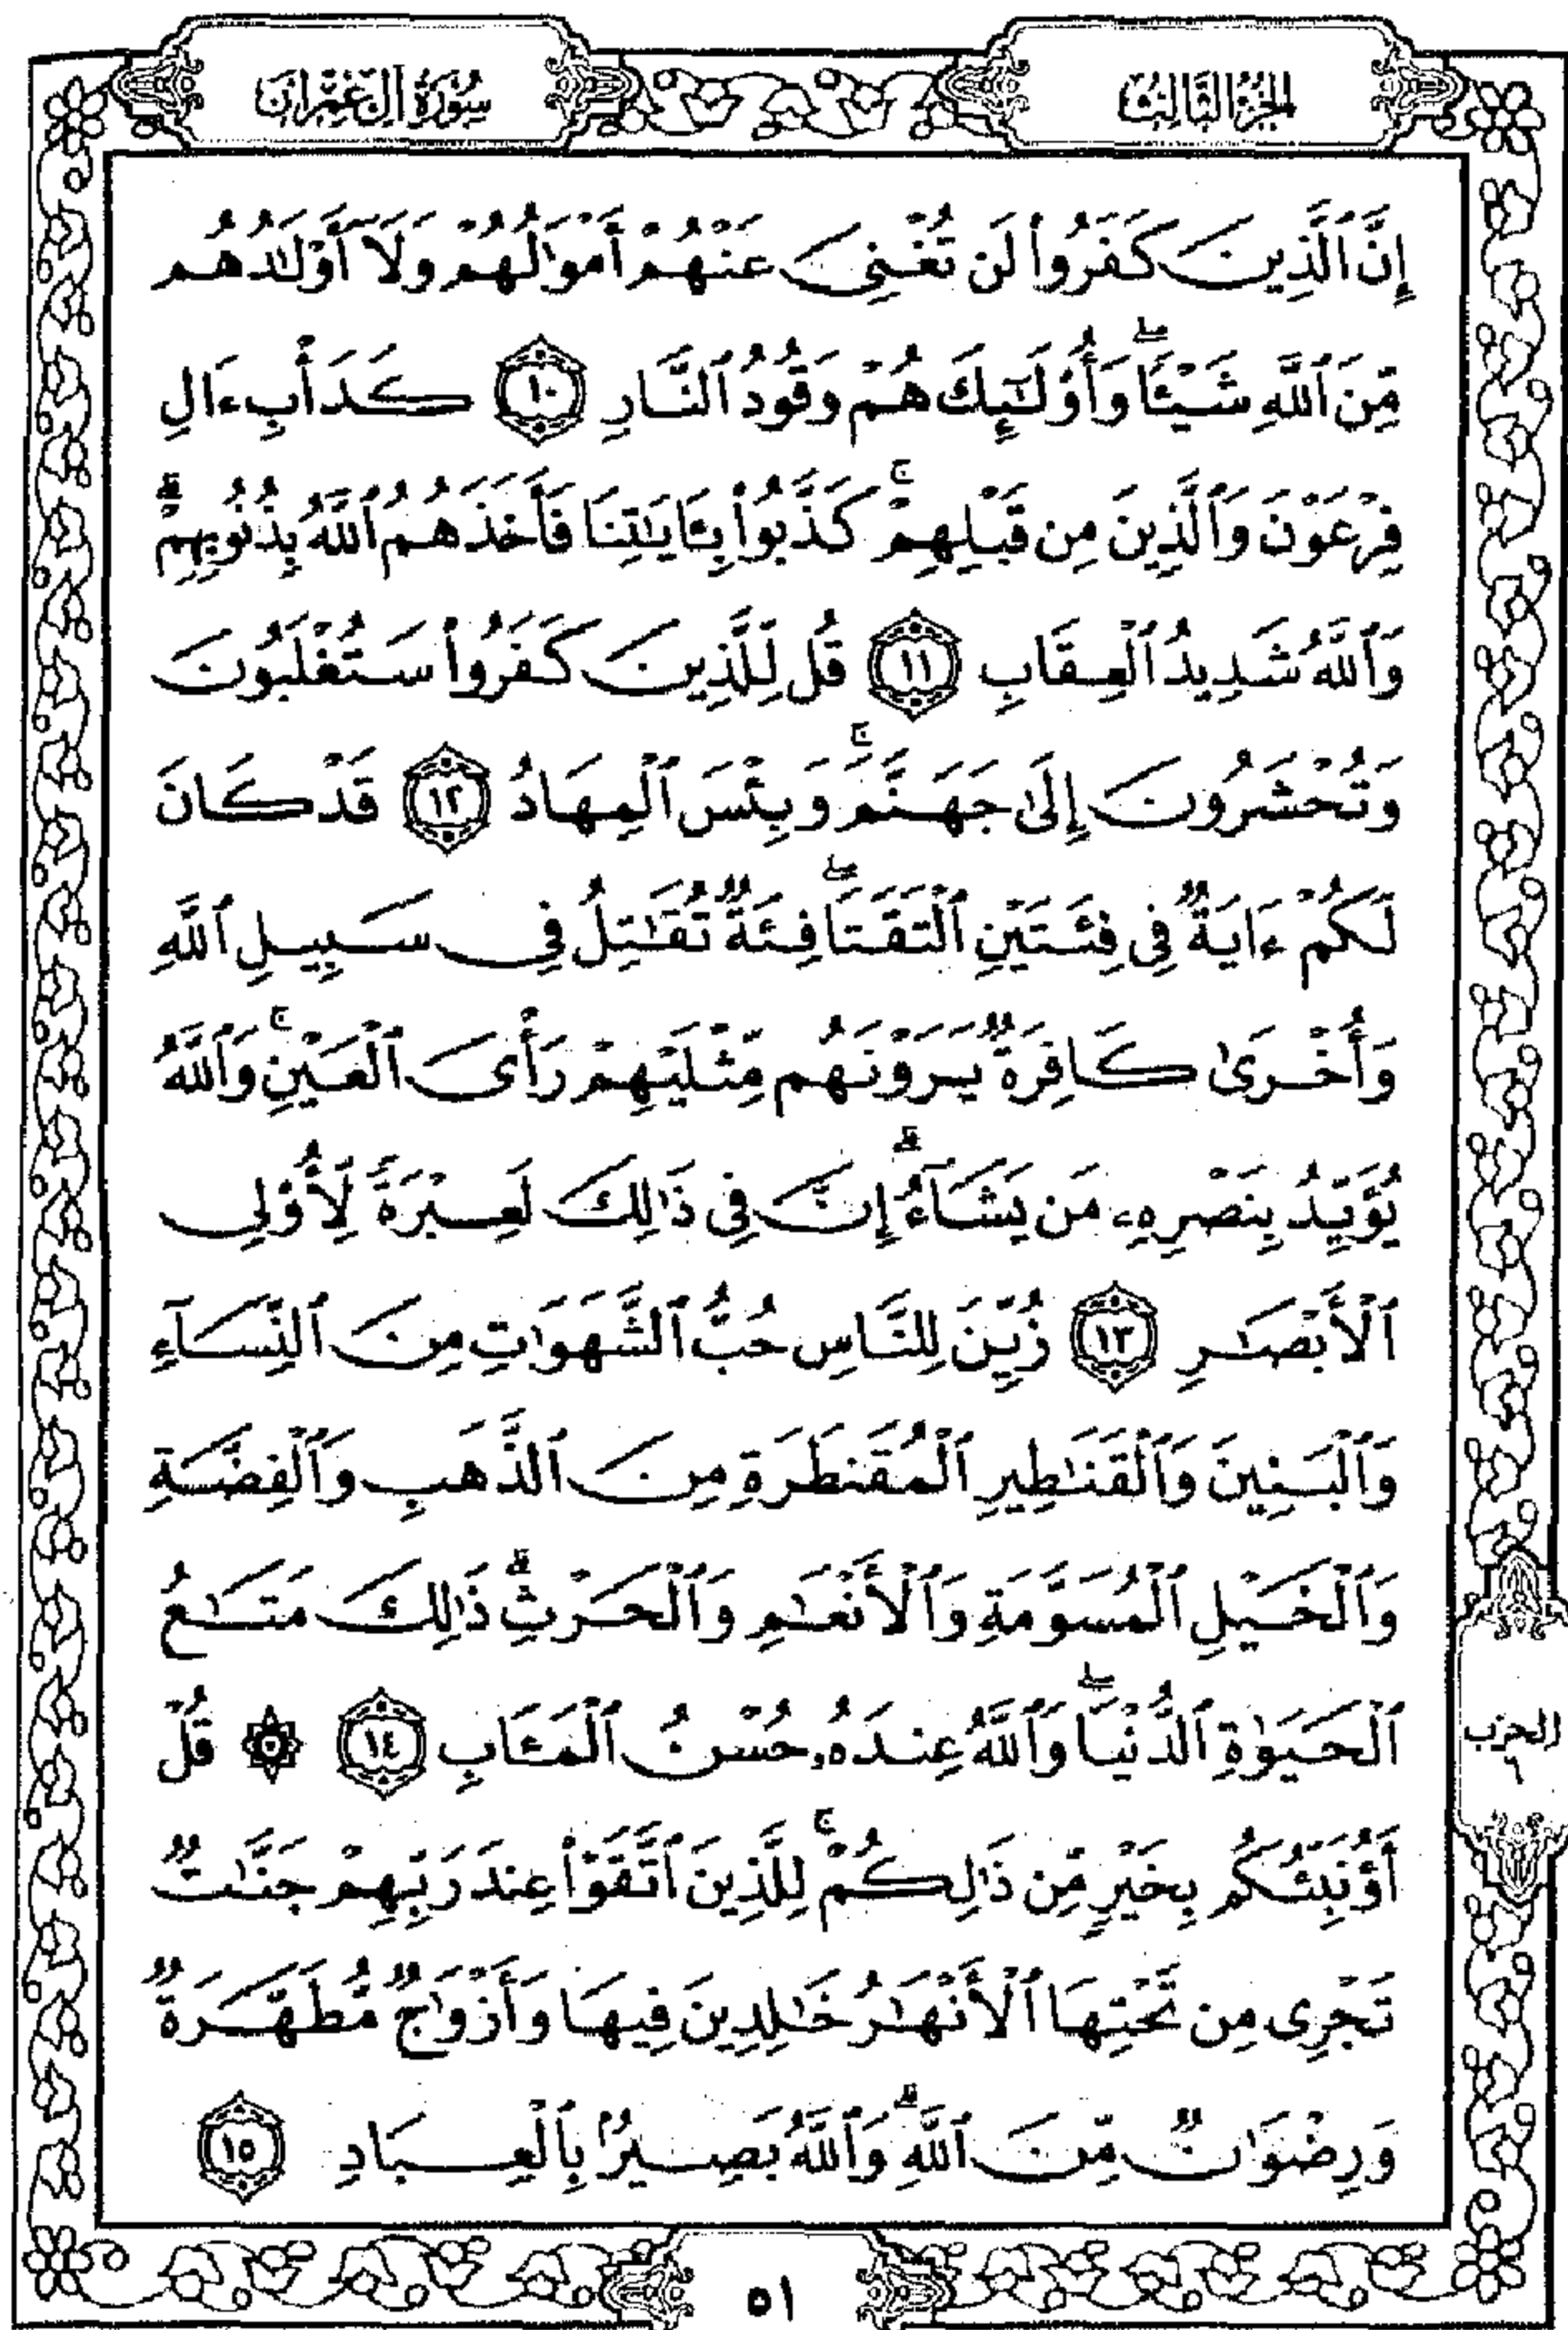 الجزء الثالث
سورة آل عمران
إِنَّ ٱلَّذِينَ كَفَرُوا۟ لَن تُغْنِىَ عَنْهُمْ أَمْوَٰلُهُمْ وَلَآ أَوْلَٰدُهُم
مِّنَ ٱللَّهِ شَيْـًٔا ۖ وَأُو۟لَٰٓئِكَ هُمْ وَقُودُ ٱلنَّارِ ١٠ كَدَأْبِ ءَالِ
فِرْعَوْنَ وَٱلَّذِينَ مِن قَبْلِهِمْ ۚ كَذَّبُوا۟ بِـَٔايَٰتِنَا فَأَخَذَهُمُ ٱللَّهُ بِذُنُوبِهِمْ ۗ
وَٱللَّهُ شَدِيدُ ٱلْعِقَابِ ١١ قُل لِّلَّذِينَ كَفَرُوا۟ سَتُغْلَبُونَ
وَتُحْشَرُونَ إِلَىٰ جَهَنَّمَ ۚ وَبِئْسَ ٱلْمِهَادُ ١٢ قَدْ كَانَ
لَكُمْ ءَايَةٌ فِى فِئَتَيْنِ ٱلْتَقَتَا ۖ فِئَةٌ تُقَٰتِلُ فِى سَبِيلِ ٱللَّهِ
وَأُخْرَىٰ كَافِرَةٌ يَرَوْنَهُم مِّثْلَيْهِمْ رَأْىَ ٱلْعَيْنِ ۚ وَٱللَّهُ
يُؤَيِّدُ بِنَصْرِهِۦ مَن يَشَآءُ ۗ إِنَّ فِى ذَٰلِكَ لَعِبْرَةً لِّأُو۟لِى
ٱلْأَبْصَٰرِ ١٣ زُيِّنَ لِلنَّاسِ حُبُّ ٱلشَّهَوَٰتِ مِنَ ٱلنِّسَآءِ
وَٱلْبَنِينَ وَٱلْقَنَٰطِيرِ ٱلْمُقَنطَرَةِ مِنَ ٱلذَّهَبِ وَٱلْفِضَّةِ
وَٱلْخَيْلِ ٱلْمُسَوَّمَةِ وَٱلْأَنْعَٰمِ وَٱلْحَرْثِ ۗ ذَٰلِكَ مَتَٰعُ
ٱلْحَيَوٰةِ ٱلدُّنْيَا ۖ وَٱللَّهُ عِندَهُۥ حُسْنُ ٱلْمَـَٔابِ ١٤ ۞ قُلْ
الحزب
٦
أَؤُنَبِّئُكُم بِخَيْرٍ مِّن ذَٰلِكُمْ ۚ لِلَّذِينَ ٱتَّقَوْا۟ عِندَ رَبِّهِمْ جَنَّٰتٌ
تَجْرِى مِن تَحْتِهَا ٱلْأَنْهَٰرُ خَٰلِدِينَ فِيهَا وَأَزْوَٰجٌ مُّطَهَّرَةٌ
وَرِضْوَٰنٌ مِّنَ ٱللَّهِ ۗ وَٱللَّهُ بَصِيرٌۢ بِٱلْعِبَادِ ١٥
٥١